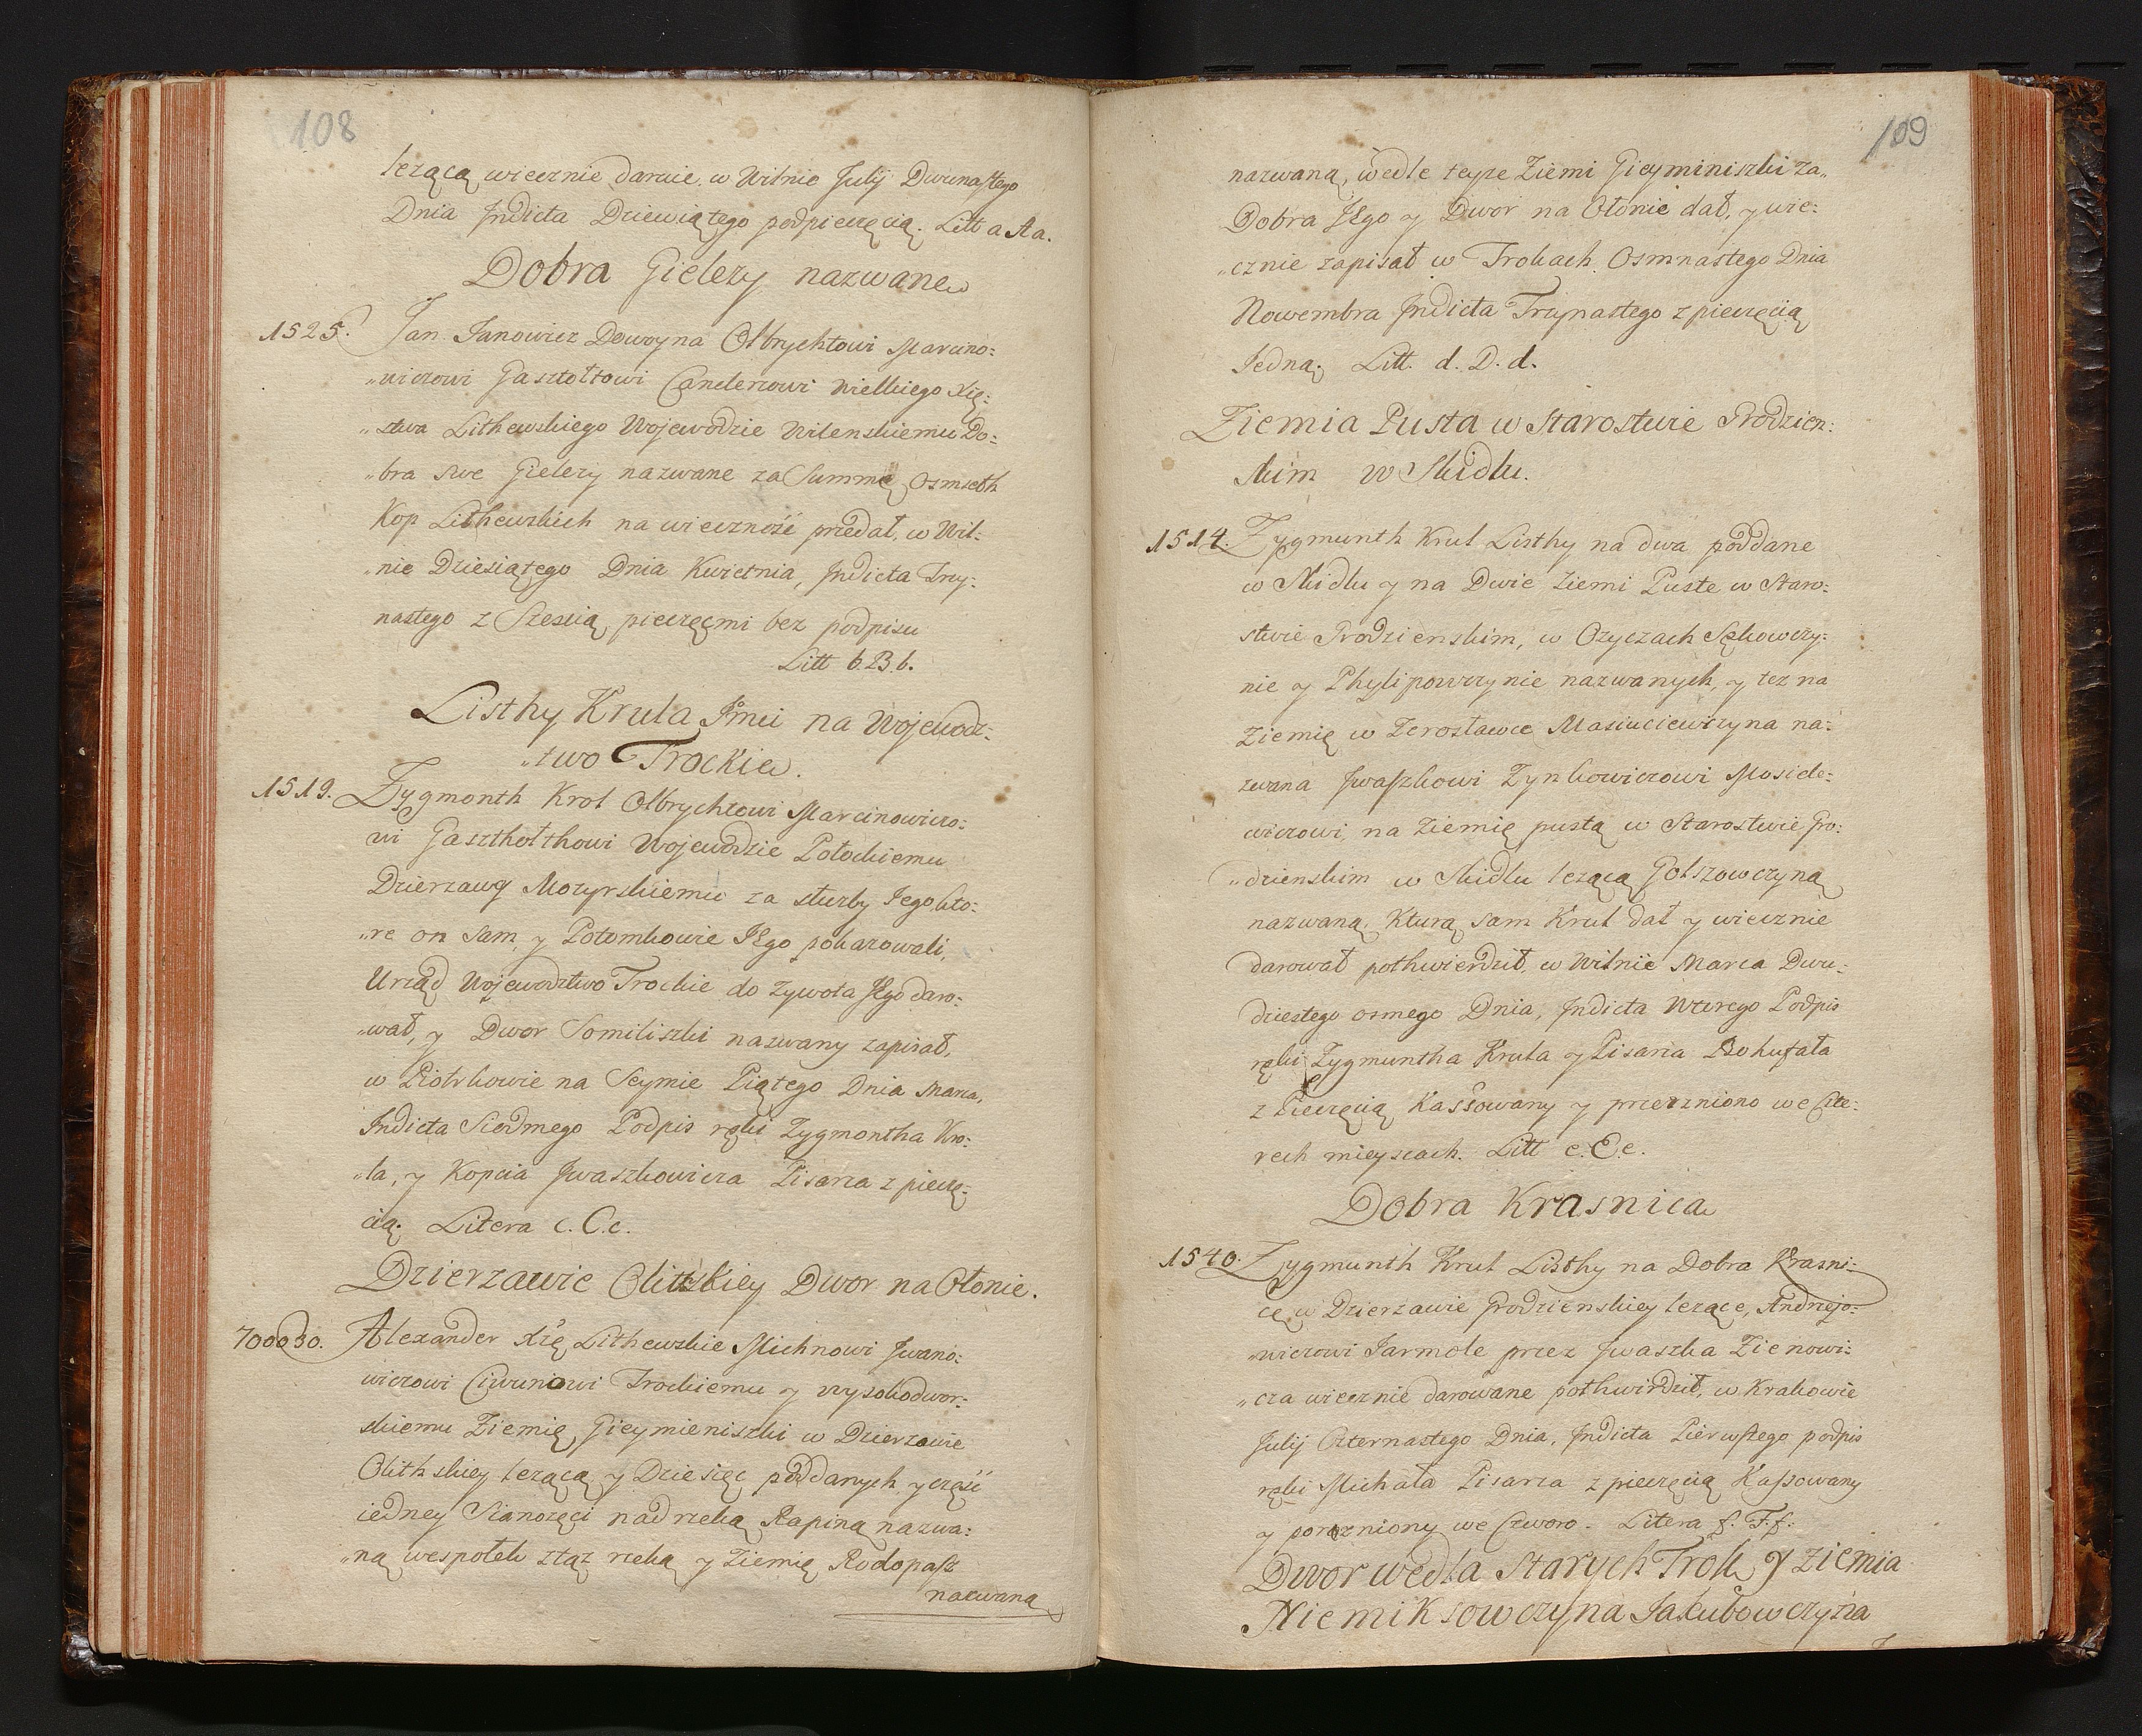 108
lezącą wiecznie daruie w Wilnie Julij Dwunastego
Dnia Indicta Dziewiątego podpieczęcią. Litt a A a.
Dobra Gielezy nazwane
1525. Jan Janowicz Dowoyna Olbrychtowi Marcino:
„wiczowi Gasztołtowi Canclerzowi Wielkiego Xię:
„stwa Lithewskiego Wojewodzie Wilenskiemu Do:
„bra swe Gielezy nazwane za Summę osmseth
Kop Lithewskich na wieczność przedał, w Wil:
„nie Dziesiątego Dnia Kwietnia, Indicta Trzy:
nastego z Sześcią pieczęcmi bez podpisu
Litt b. B. b.
Listhy Krula Jmci na Wojewodz:
„two Trockie.
1519. Zygmonth Krol Olbrychtowi Marcinowiczo:
wi Gaszthołthowi Wojewodzie Połockiemu
Dzierzawcy Mozyrskiemu za służby Jego kto:
„re on sam y Potomkowie Jego pokazowali,
Urząd Wojewodztwo Trockie do żywota Jego daro:
„wał, y Dwor Somiliszki nazwany zapisał,
w Piotrkowie na Seymie Piątego Dnia Marca,
Indicta Siedmego Podpis ręki Zygmontha Kro:
„la, y Kopcia Jwaszkowicza Pisarza z pieczę:
cią. Litera c. C. c.
Dzierzawie Olitskiey Dwor na Ołonie.
700030. Alexander Xżę Lithewskie Michnowi Jwano:
wiczowi Ciwuniowi Trockiemu y wysokodwor:
skiemu Ziemię Gieymieniszki w Dzierzawie
Olithskiey lezącą y Dziesięc poddanych y część
iedney Sianozęci nad rzeką Rapiną nazwa:
„ną wespołek ztąz rzeką y Ziemię Rodopasz
nazwaną
109
nazwaną, wedle teyze Ziemi Gieyminiszki za„
Dobra Jego y Dwor na Ołonie dał, y wie:
„cznie zapisał w Trokach Osmnastego Dnia
Nowembra Indicta Trzynastego z pieczęcią
Jedną. Litt. d. D. d.
Ziemia Pusta w Starostwie Grodzien:
skim w Skidlu.
1514. Zygmunth Krul Listhy na dwa poddane
w Skidlu y na Dwie Ziemi Puste w Staro:
stwie Grodzienskim, w Ozyczach Sękowczy:
nie y Phylipowczynie nazwanych, y tez na
Ziemię w Zerosławce Masiuciewczyna na:
zwana Jwaszkowi Zynkowiczowi Moside:
wiczowi, na Ziemię pustą w Starostwie Gro:
„dzienskim w Skidlu lezącą Golszowczyną
nazwaną Kturą sam Krul dał y wiecznie
darował pothwierdził, w Wilnie Marca Dwu:
dziestego osmego Dnia, Indicta Wtorego Podpis
ręki Zygmuntha Krula y Pisarza Bohufała
z Pieczęcią Kassowany y przerzniono we czte:
rech mieyscach. Litt e. E. e.
Dobra Krasnica
1540. Zygmunth Krul Listhy na Dobra Krasni:
cę w Dzierzawie Grodzienskiey lezące, Andrejo:
„wiczowi Jarmole przez Jwaszka Zienowi:
„cza wiecznie darowane pothwirdził, w Krakowie
Julij Czternastego Dnia, Indicta Pierwszego podpis
ręki Michała Pisarza z pieczęcią Kassowany
y porozniony we czworo. Litera f. F. f.
Dwor wedla Starych Trok y Ziemia
Niemiksowczyna Jakubowczyna